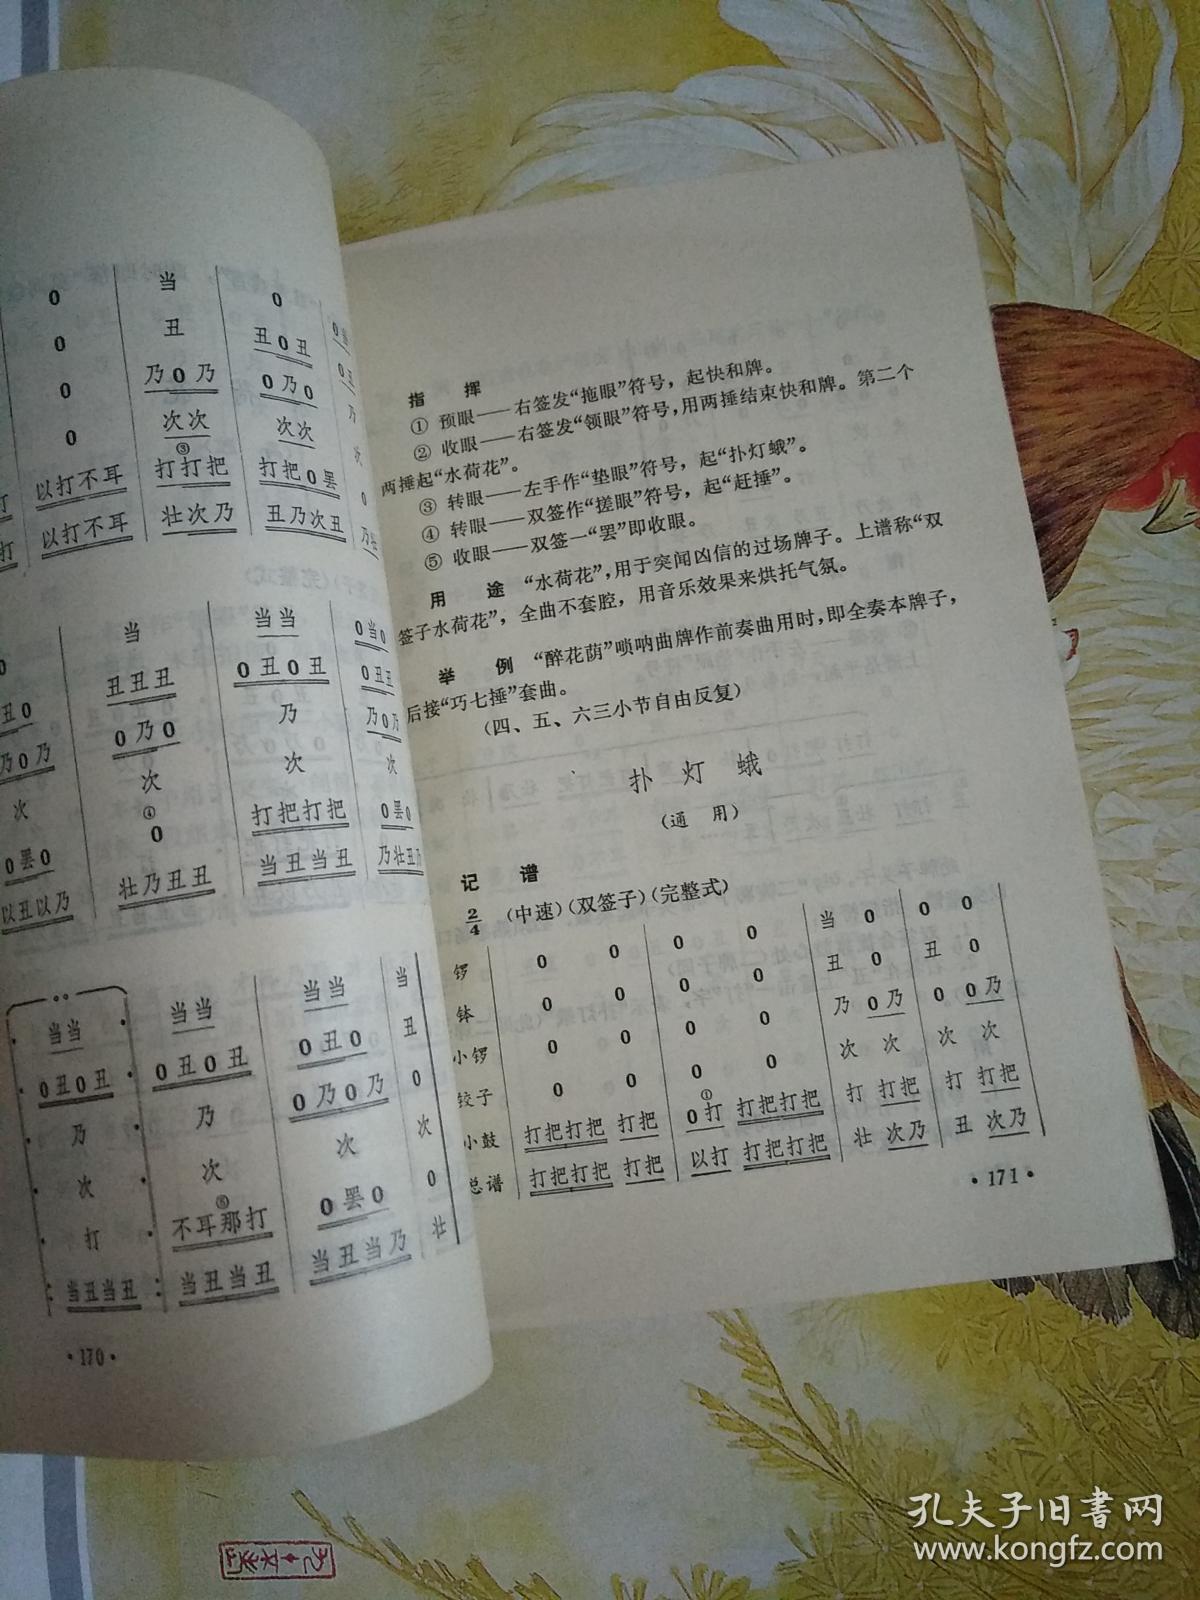 0 当 0
0 丑 丑0丑
0 乃0乃 0乃0
0 次次 次次
③
以打不耳 打打把 打把0罢
以打不耳 壮次乃 丑乃次丑
当 当当 0当0
丑丑丑 0丑0丑 0丑丑
丑0 0乃0 乃 乃0乃
乃0乃 次 次 次
次 ④
0罢0 0 打把打把 0罢0
以丑以乃 壮乃丑丑 当丑当丑 乃壮丑乃
当当 当当 当当 当
0丑0丑 0丑0丑 0丑0 丑
乃 乃 0乃0乃 0
次 次 次 次
⑤
打 不耳那打 0罢0 0
当丑当丑 当丑当丑 当丑当乃 壮
·170·
指 挥
① 预眼——右签发“拖眼”符号，起快和牌。
② 收眼——右签发“领眼”符号，用两捶结束快和牌。第二个
两捶起“水荷花”。
③ 转眼——左手作“垫眼”符号，起“扑灯蛾”。
④ 转眼——双签作“搓眼”符号，起“赶捶”。
⑤ 收眼——双签一“罢”即收眼。
用 途 “水荷花”，用于突闻凶信的过场牌子。上谱称“双
签子水荷花”，全曲不套腔，用音乐效果来烘托气氛。
举 例 “醉花荫”唢呐曲牌作前奏曲用时，即全奏本牌子，
后接“巧七捶”套曲。
(四、五、六三小节自由反复)
扑 灯 蛾
(通 用)
记 谱
2/4 (中速)(双签子)(完整式)
锣 0 0 0 0 当 0 0 0
钵 0 0 0 0 丑 0 丑 0
小锣 0 0 0 0 乃 0乃 0 0乃
铰子 0 0 0 0 次 次 次 次
①
小鼓 打把打把 打把 0打 打把打把 打 打把 打 打把
总谱 打把打把 打把 以打 打把打把 壮 次乃 丑 次乃
·171·
孔夫子旧书网
www.kongfz.com